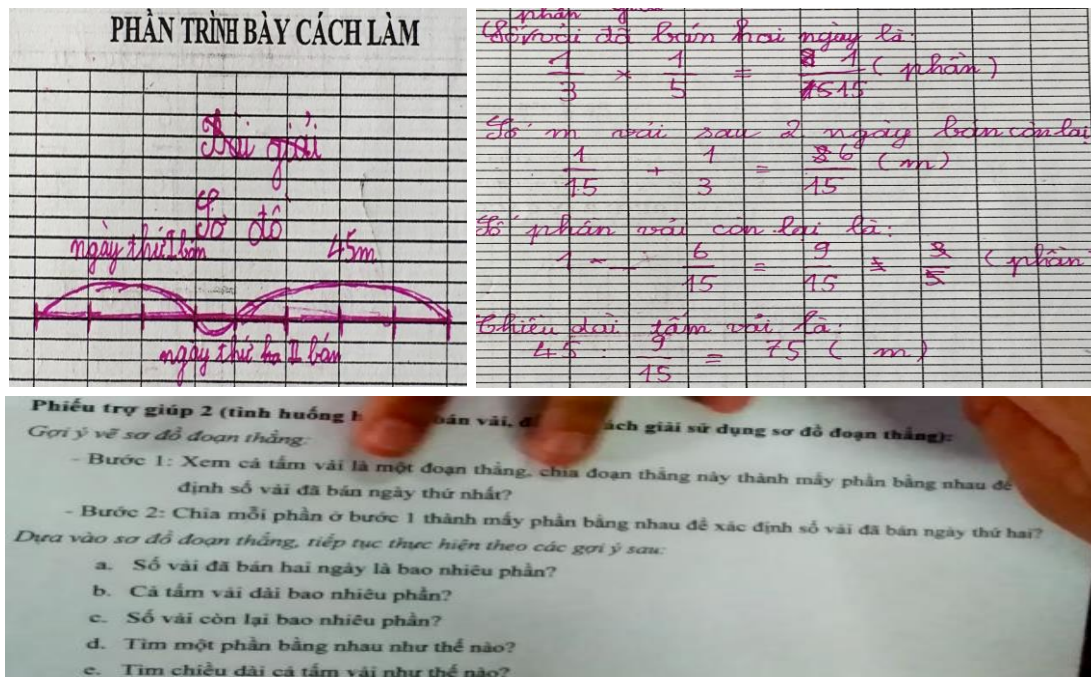 PHẦN TRÌNH BÀY CÁCH LÀM
Bài giải
Sơ đồ
ngày thứ I bán 45m
ngày thứ II bán
Số vải đã bán hai ngày là:
1/3 × 1/5 = 1/15 (phần)
Số m vải sau 2 ngày bán còn lại
1/15 + 1/3 = 6/15 (m)
Số phần vải còn lại là:
1 - 6/15 = 9/15 = 3/5 (phần
Chiều dài tấm vải là:
45 : 9/15 = 75 (m)
Phiếu trợ giúp 2 (tình huống oán vải, ách giải sử dụng sơ đồ đoạn thẳng):
Gợi ý vẽ sơ đồ đoạn thẳng:
- Bước 1: Xem cả tấm vải là một đoạn thẳng, chia đoạn thẳng này thành mấy phần bằng nhau để
định số vải đã bán ngày thứ nhất?
- Bước 2: Chia mỗi phần ở bước 1 thành mấy phần bằng nhau để xác định số vải đã bán ngày thứ hai?
Dựa vào sơ đồ đoạn thẳng, tiếp tục thực hiện theo các gợi ý sau:
a. Số vải đã bán hai ngày là bao nhiêu phần?
b. Cả tấm vải dài bao nhiêu phần?
c. Số vải còn lại bao nhiêu phần?
d. Tìm một phần bằng nhau như thế nào?
e. Tìm chiều dài cả tấm vải như thế nào?